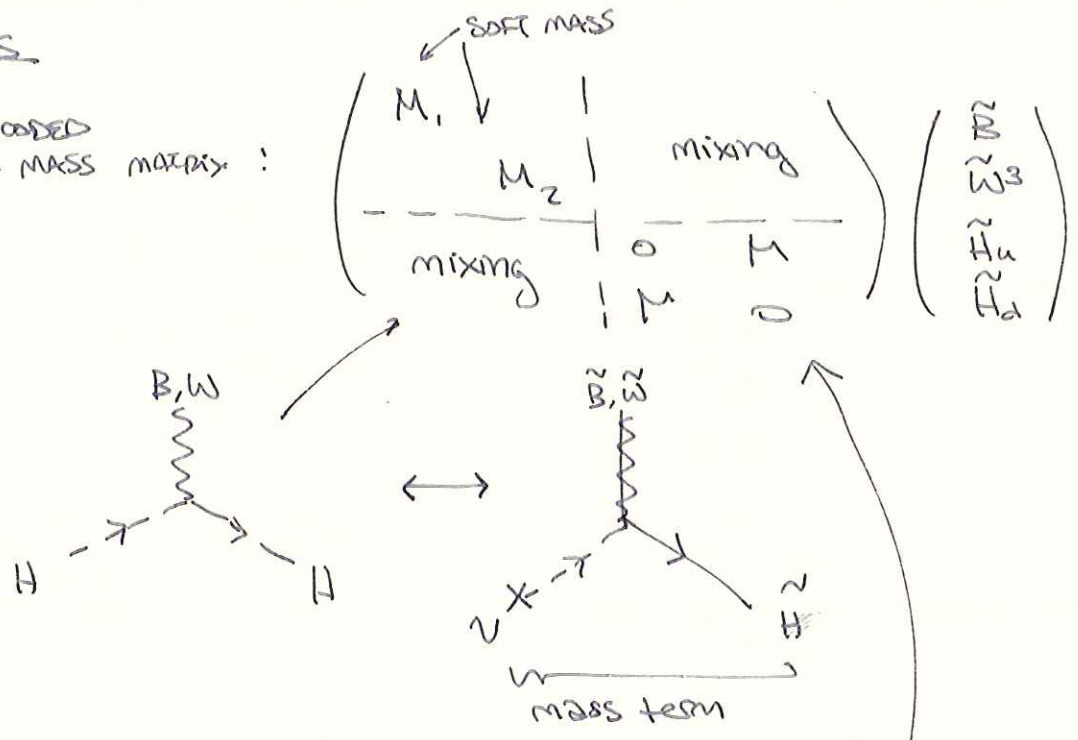 S
SOFT MASS
CODED
MASS MATRIX :
M₁
M₂
mixing
mixing
0 μ
μ 0
B̃
W̃³
H̃u
H̃d
B,W
H
H
B̃,W̃
v
H̃
mass term